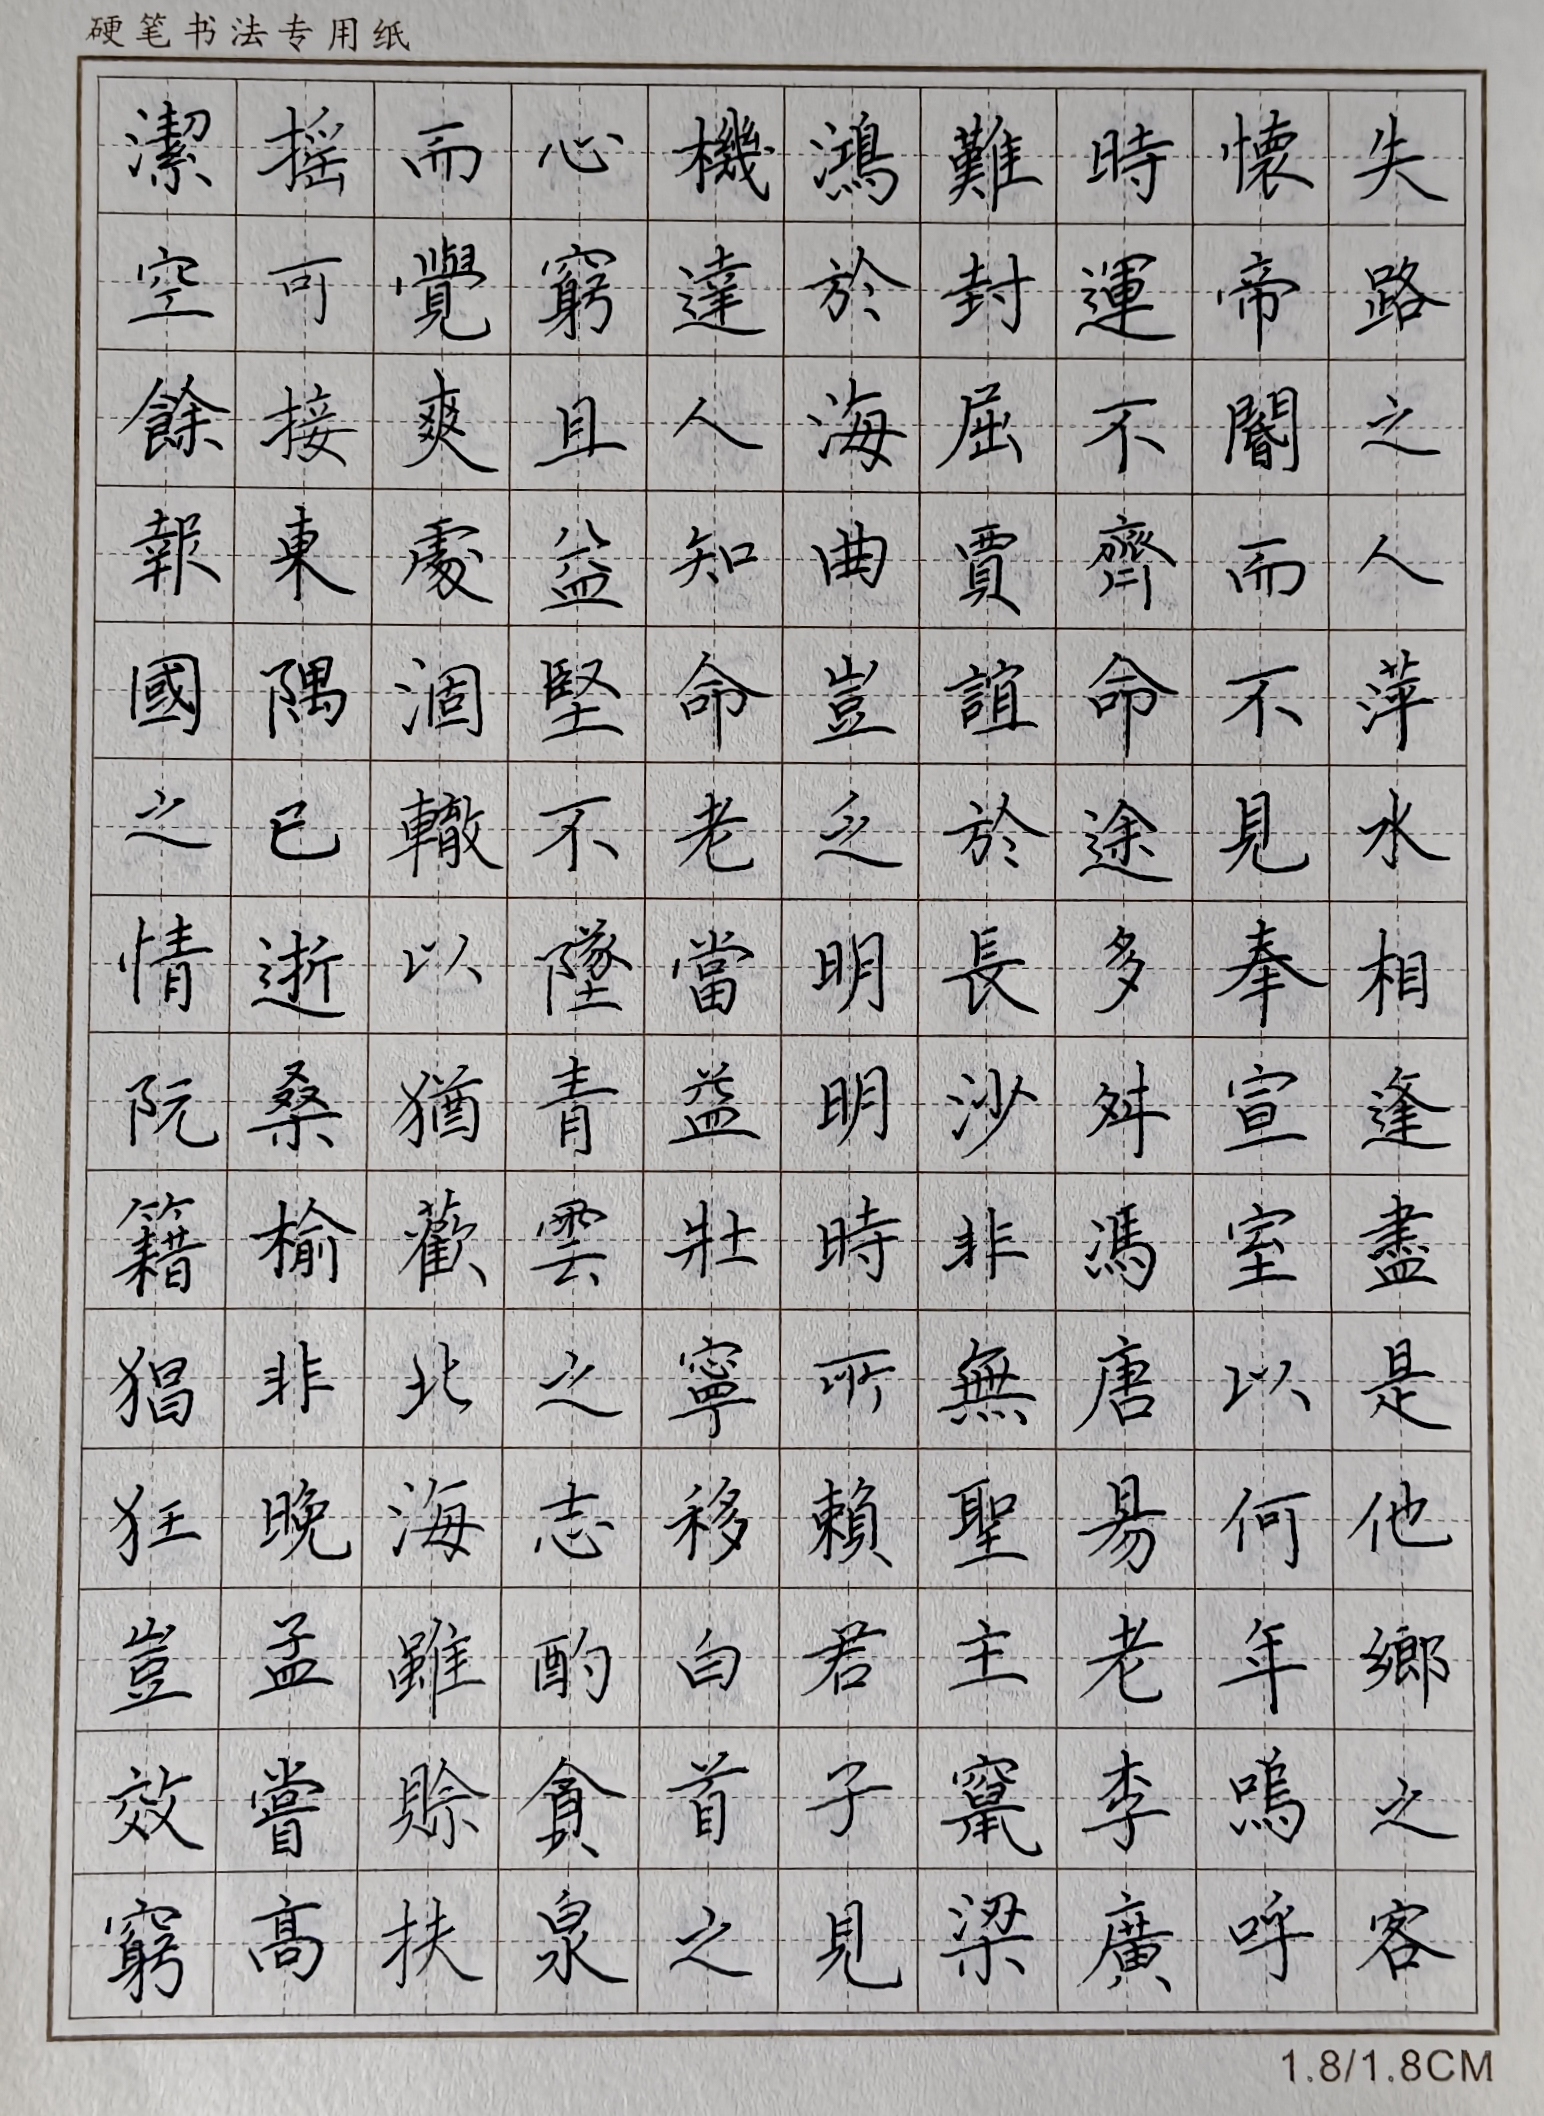 硬笔书法专用纸
失路之人萍水相逢盡是他鄉之客
懷帝閽而不見奉宣室以何年嗚呼
時運不齊命途多舛馮唐易老李廣
難封屈賈誼於長沙非無聖主竄梁
鴻於海曲豈乏明明時所賴君子見
機達人知命老當益壯寧移白首之
心窮且益堅不墜青雲之志酌貪泉
而覺爽處涸轍以猶歡北海雖賒扶
摇可接東隅已逝桑榆非晚孟嘗高
潔空餘報國之情阮籍猖狂豈效窮
1.8/1.8CM